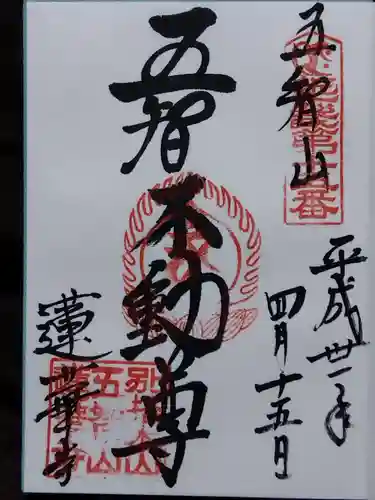 五智山
平成卅一年
四月十五日
五智不動尊
蓮華寺
別格本山
五智山
蓮華寺